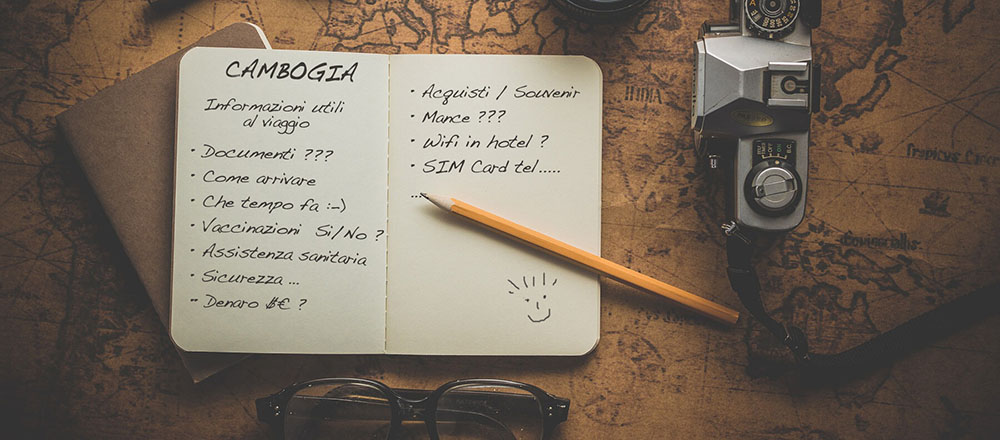 CAMBOGIA
Informazioni utili
al viaggio
• Documenti ???
• Come arrivare
• Che tempo fa :-)
• Vaccinazioni Si/No ?
• Assistenza sanitaria
• Sicurezza ...
• Denaro $€ ?
• Acquisti / Souvenir
• Mance ???
• Wifi in hotel ?
• SIM Card tel.....
...
INDIA